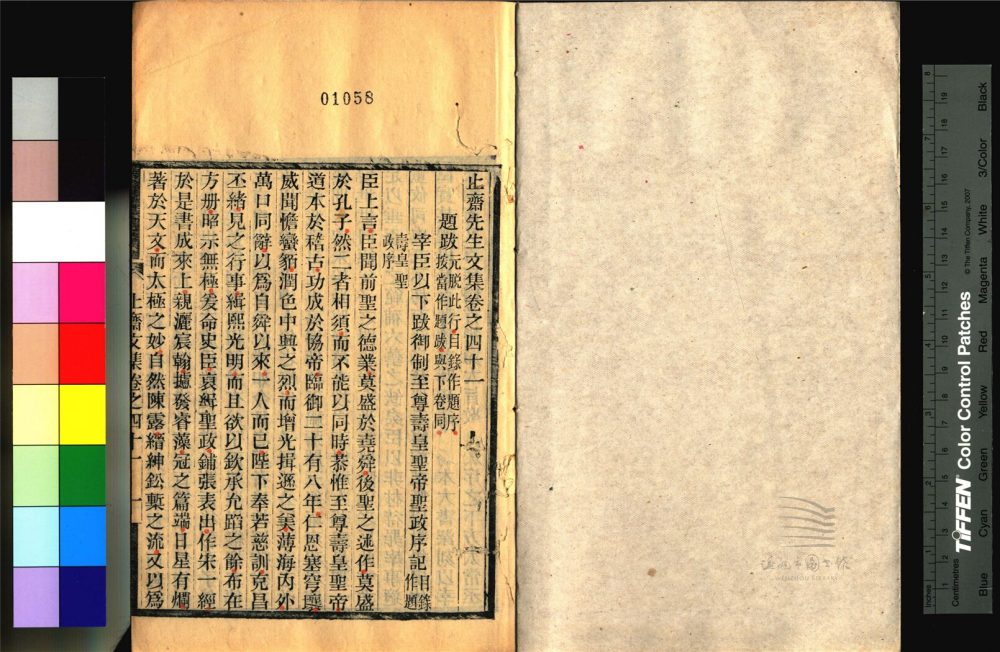 01058
止齋先生文集卷之四十一
題跋元脫此行目錄作題序
按當作題跋與下卷同
宰臣以下跋御制至尊壽皇聖帝聖政序記目錄作題
壽皇聖
政序
臣上言臣聞前聖之德業莫盛於堯舜後聖之述作莫盛
於孔子然二者相須而不能以同時恭惟至尊壽皇聖帝
道本於稽古功成於協帝臨御二十有八年仁恩塞穹壤
威聞憺蠻貊潤色中興之烈而增光揖遜之美薄海內外
萬口同辭以爲自舜以來一人而已陛下奉若慈訓克昌
丕緒見之行事緝熙光明而且欲以欽承允蹈之餘布在
方册昭示無極爰命史臣裒緝聖政鋪張表出作宋一經
於是書成來上親灑宸翰攄發睿藻冠之篇端日星有爛
著於天文而太極之妙自然陳露縉紳鉛槧之流又以爲
止齋文集卷之四十一 一
Inches
Centimetres
TIFFEN Color Control Patches
© The Tiffen Company, 2007
Blue
Cyan
Green
Yellow
Red
Magenta
White
3/Color
Black
溫州市圖書館
WENZHOU LIBRARY